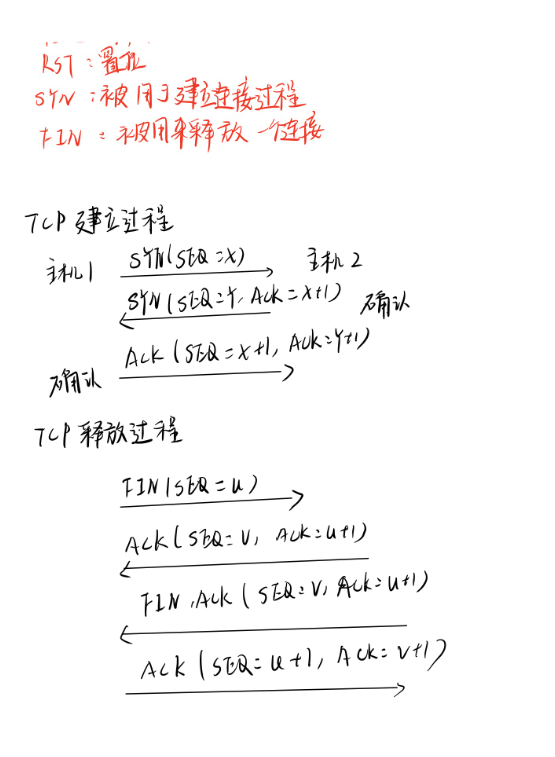 RST：置位
SYN：被用于建立连接过程
FIN：被用来释放一个连接
TCP 建立过程
主机1 SYN(SEQ=X) 主机2
SYN(SEQ=Y, ACK=X+1) 确认
确认 ACK (SEQ=X+1, ACK=Y+1)
TCP 释放过程
FIN(SEQ=u)
ACK(SEQ=v, ACK=u+1)
FIN,ACK (SEQ=v, ACK=u+1)
ACK (SEQ=u+1, ACK=v+1)